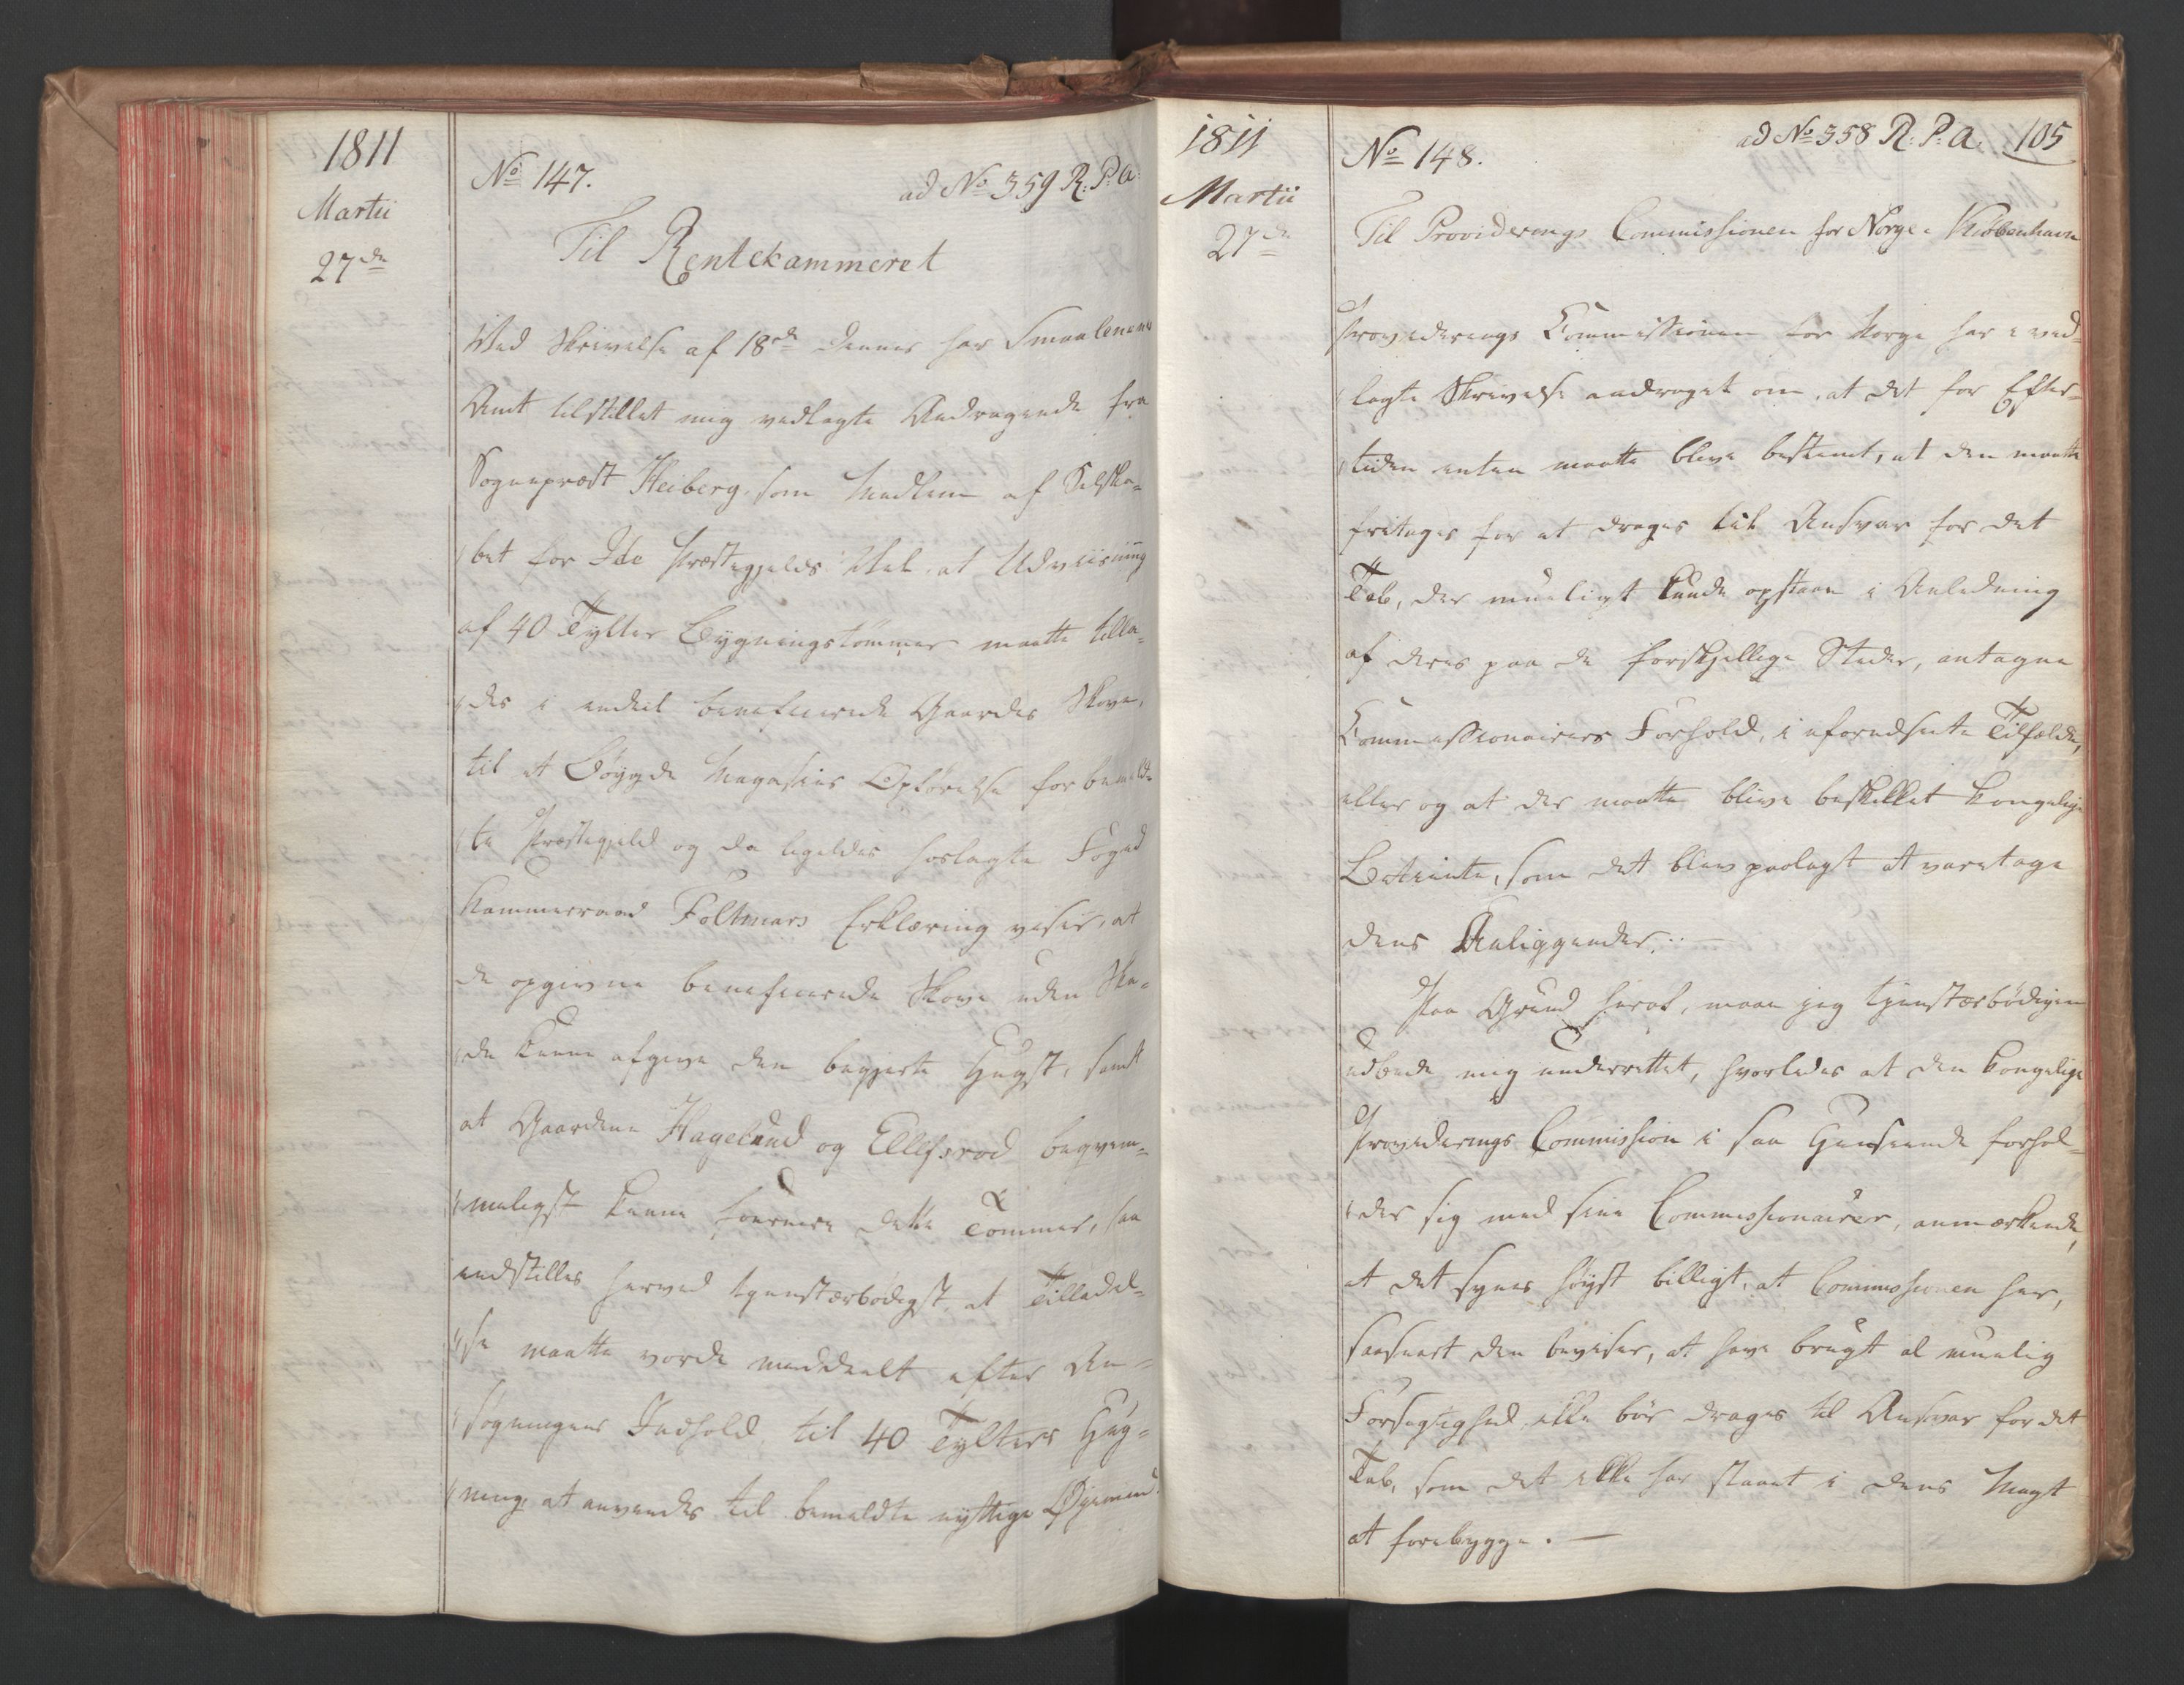 1811
Martii
27de
No 147.
ad No 359 R: P: A:
Til Rentekammeret
Ved Skrivelse af 18de dennes har Smaalenenes
Amt tilstillet mig vedlagte Andragende fra
Sognepræst Heiberg, som Medlem af Selska-
bet for Ide Præstegjelds Vel, at Udviisning
af 40 Tylter Bygningstømmer maatte tilla-
des i endeel beneficerede Gaardes Skove,
til et Bøygde Magasins Opførelse for bemeld-
te Præstegjeld og da ligeledes hoslagte Foged
Kammerraad Foltmars Erklæring viser, at
de opgivne beneficerede Skove uden Ska-
de kunne afgive den begjerte Hugst, samt
at Gaardene Hagelund og Ellfsrød beqvem-
meligst kunne fournere dette Tømmer, saa
indstilles herved tjenstærbødigst, at Tilladel-
se maatte vorde meddeelt efter An-
søgningens Indhold, til 40 Tylters Hug-
ning, at anvendes til bemeldte nyttige Øjemed.
1811
Martii
27de
No 148.
ad No 358 R: P: A:
105
Til Providerings Commissionen for Norge i Kiøbenhavn
Providerings Commissionen for Norge har i ved-
lagte Skrivelse andraget om, at det for Efter-
tiden enten maatte blive bestemt, at den maatte
fritages for at drages til Ansvar for det
Tab, der mueligt kunde opstaae i Anledning
af deres paa de forskjellige Steder, antagne
Commissionairers Forhold, i uforudseete Tilfælde,
eller og at der maatte blive beskikket kongelige
Betiente, som det blev paalagt at varetage
dens Anliggender. —
Paa Grund heraf, maae jeg tjenstærbødigen
udbede mig underrettet, hvorledes at den kongelige
Providerings Commission i saa Henseende forhol-
der sig med sine Commissionairer, anmærkende,
at det synes høyst billigt, at Commissionen her,
saasnart den beviser, at have brugt al muelig
Forsigtighed ikke bør drages til Ansvar for det
Tab, som det ikke har staaet i dens Magt
at forebygge. —